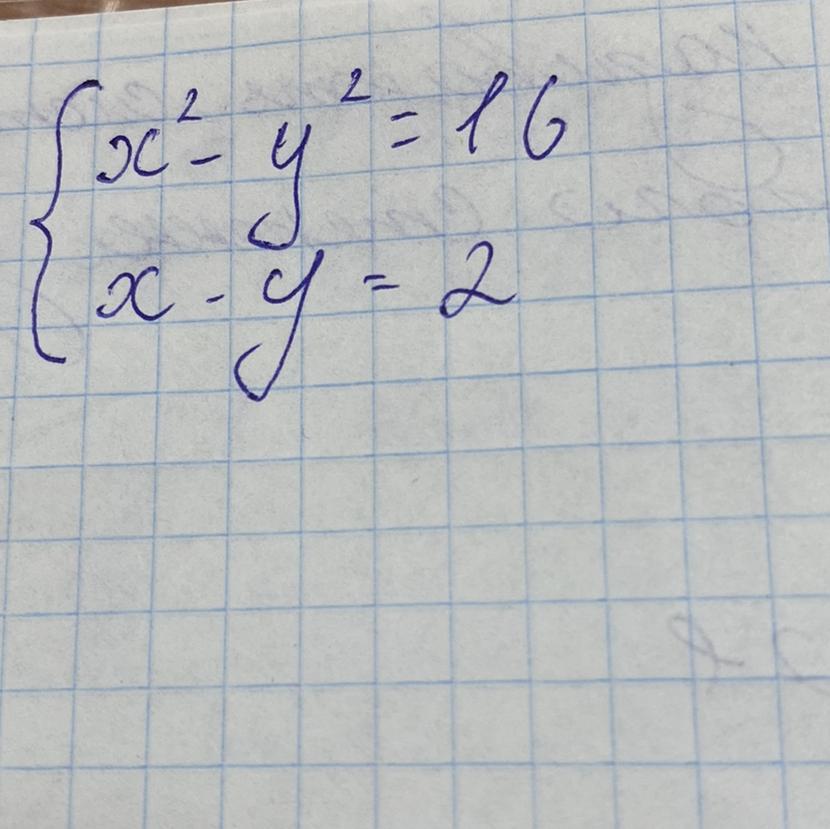 x² - y² = 16
x - y = 2